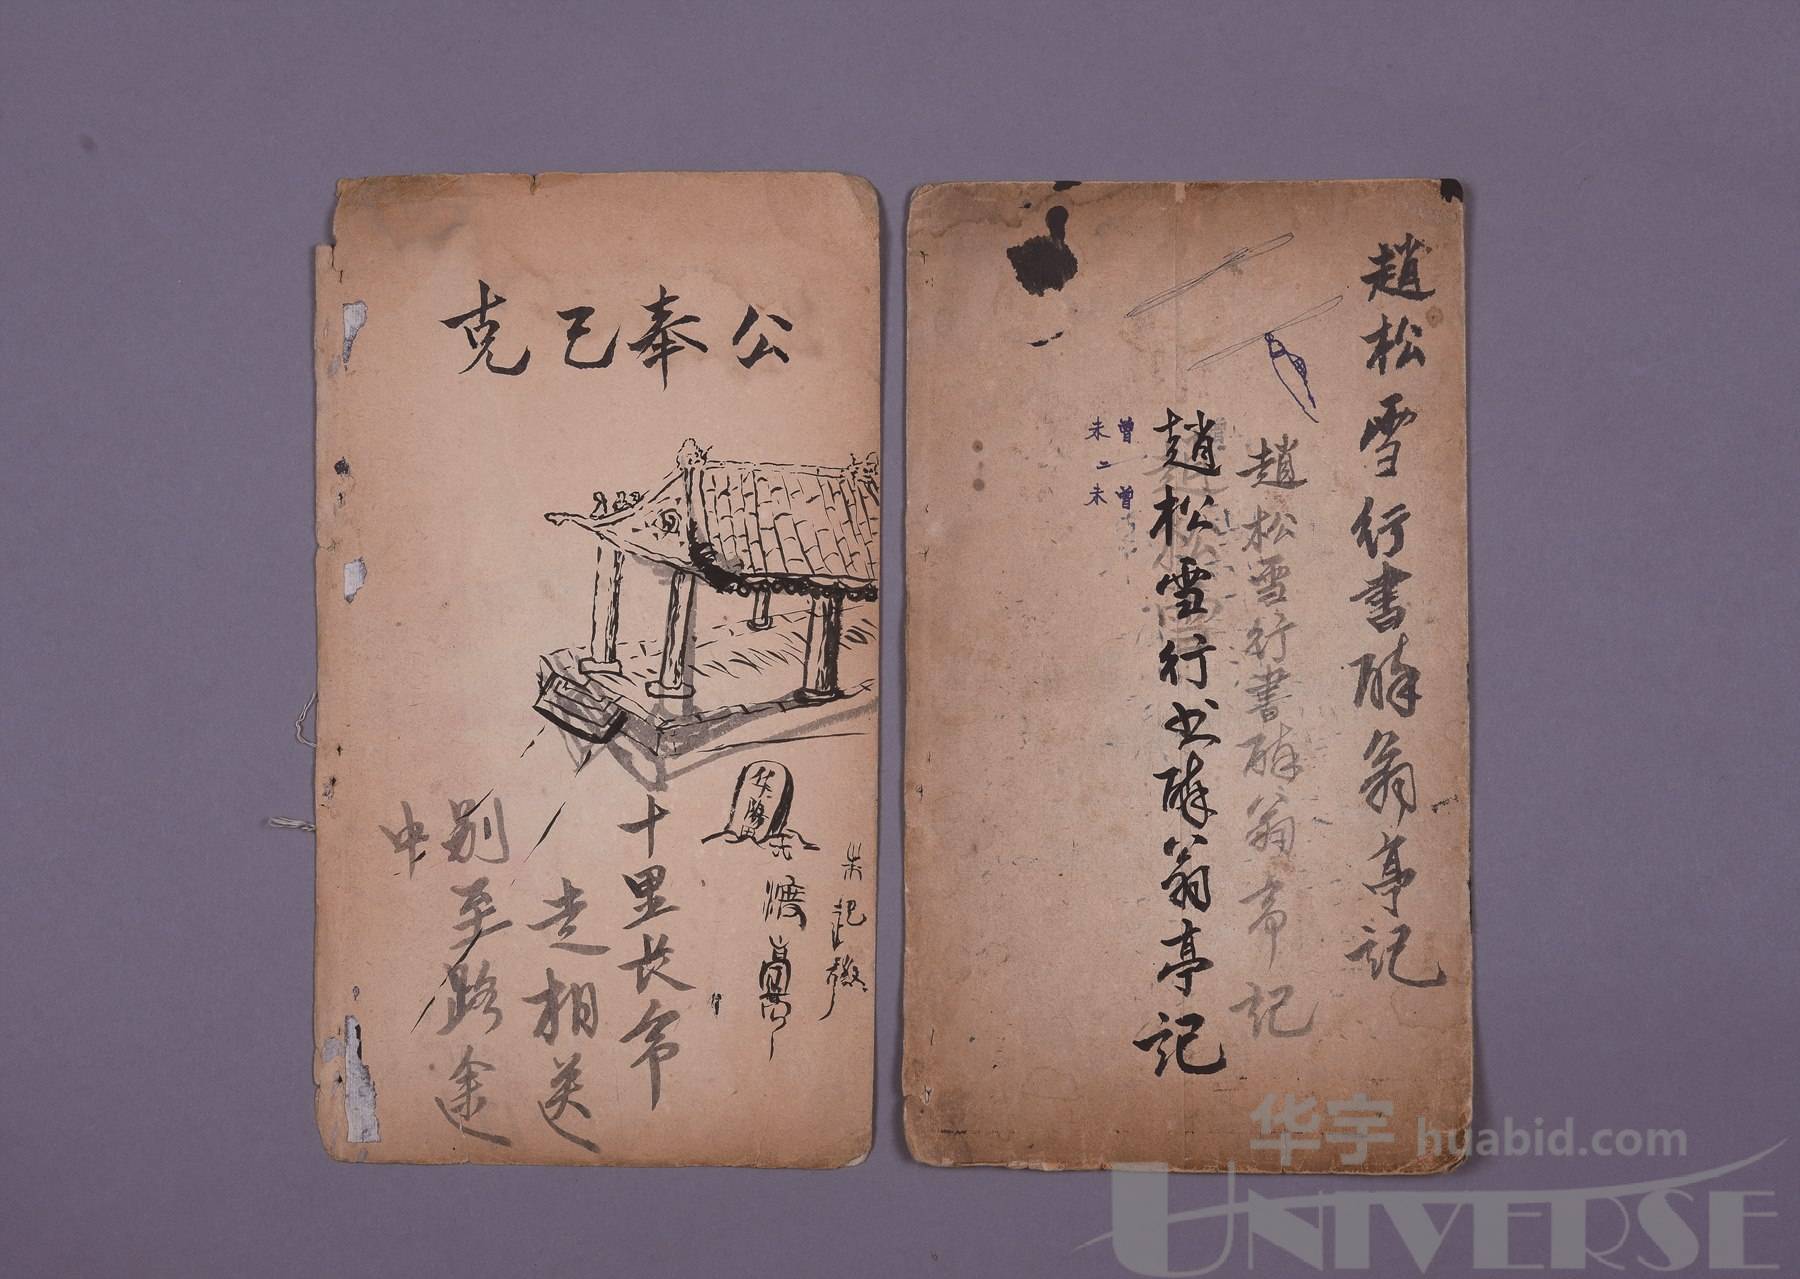 克己奉公
十里长亭
走相送
别至路途
中
朱記
趙松雪行書醉翁亭記
趙松雪行書醉翁亭記
趙松雪行书醉翁亭記
曾 曾
未二未
华宇 huabid.com
UNIVERSE